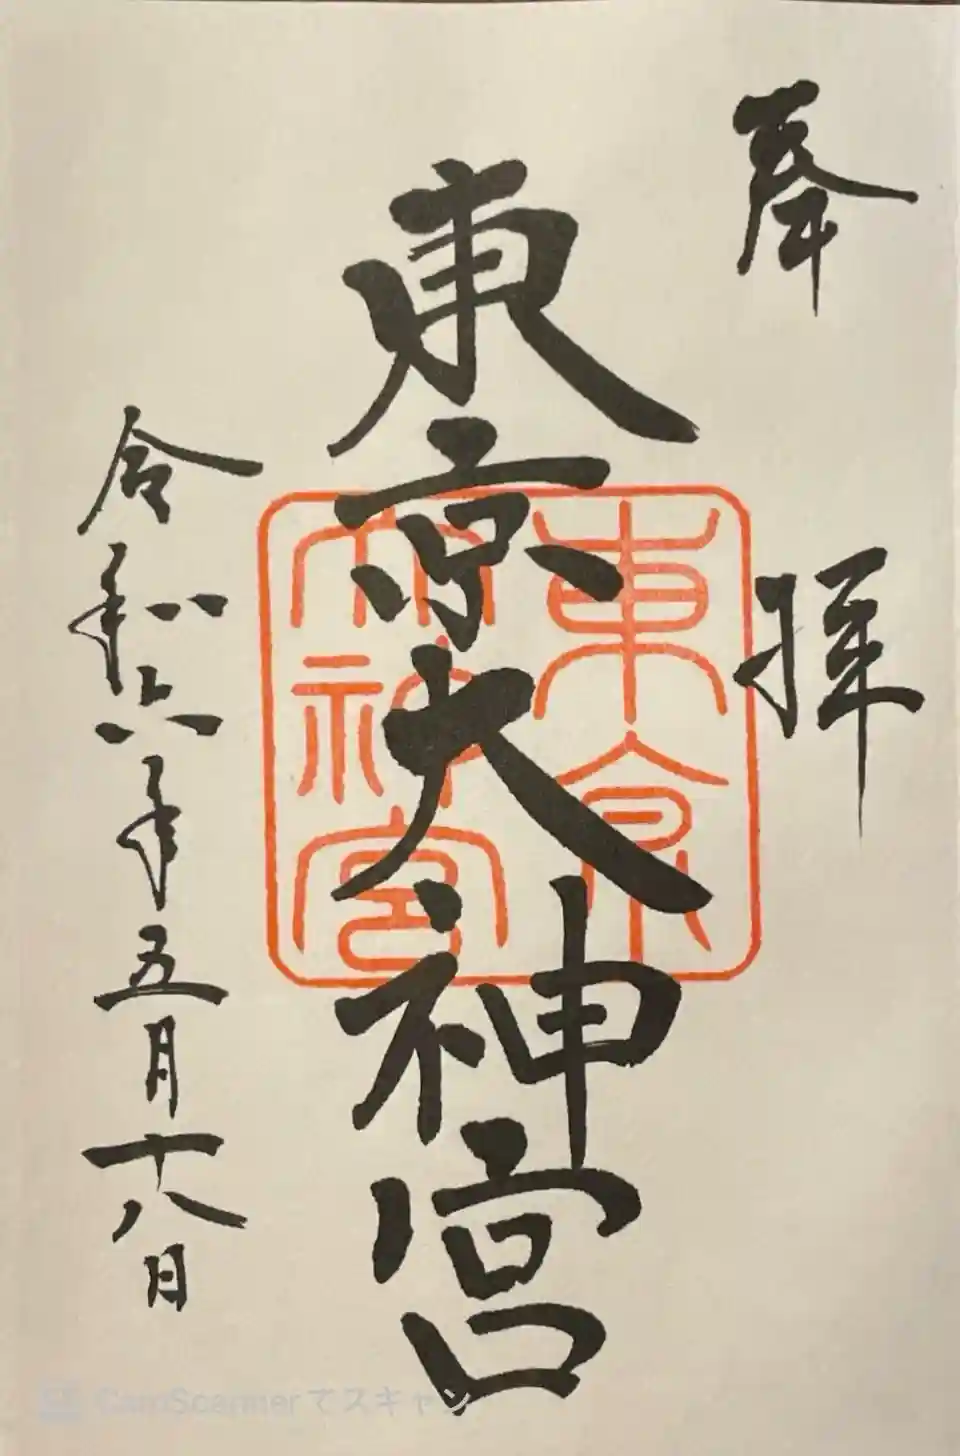 奉拝
東京大神宮
東京
大神宮
令和六年五月十八日
CamScannerでスキャン